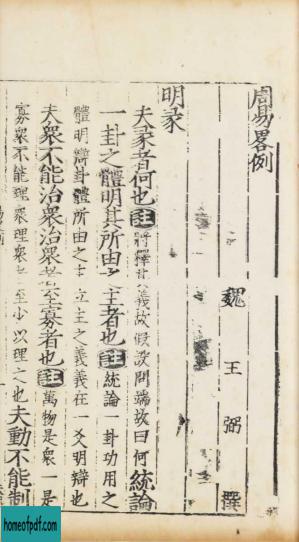 周易畧例
魏 王 弼 撰
明彖
夫彖者何也註將釋其義故假設問端故曰何統論
一卦之體明其所由之主者也註統論一卦功用之
體明辯卦體所由之主立主之義義在一爻明辯也
夫衆不能治衆治衆者至寡者也註萬物是衆一是
寡衆不能理衆理衆者至少以理之也夫動不能制
homeofpdf.com